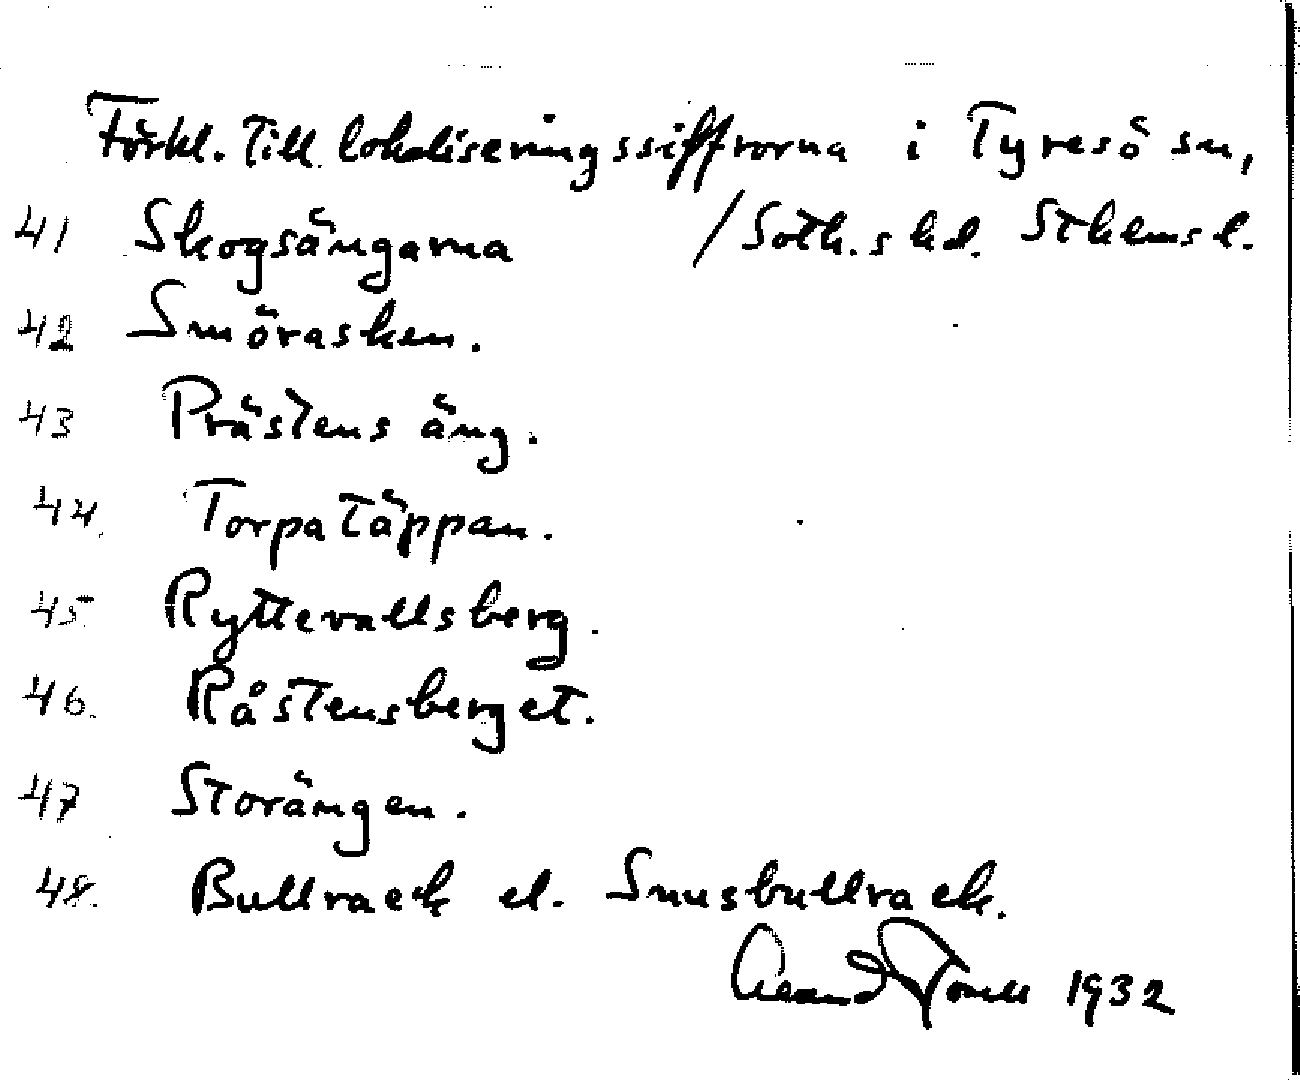 Förkl. till lokaliseringssiffrorna i Tyresö sn,
41 Skogsängarna /Soth.s hd. Sthlms l.
42 Smörasken.
43 Prästens äng.
44. Torpatäppan.
45. Ryttevallsberg.
46. Råstensberget.
47 Storängen.
48. Bullrack el. Snusbullrack.
1932